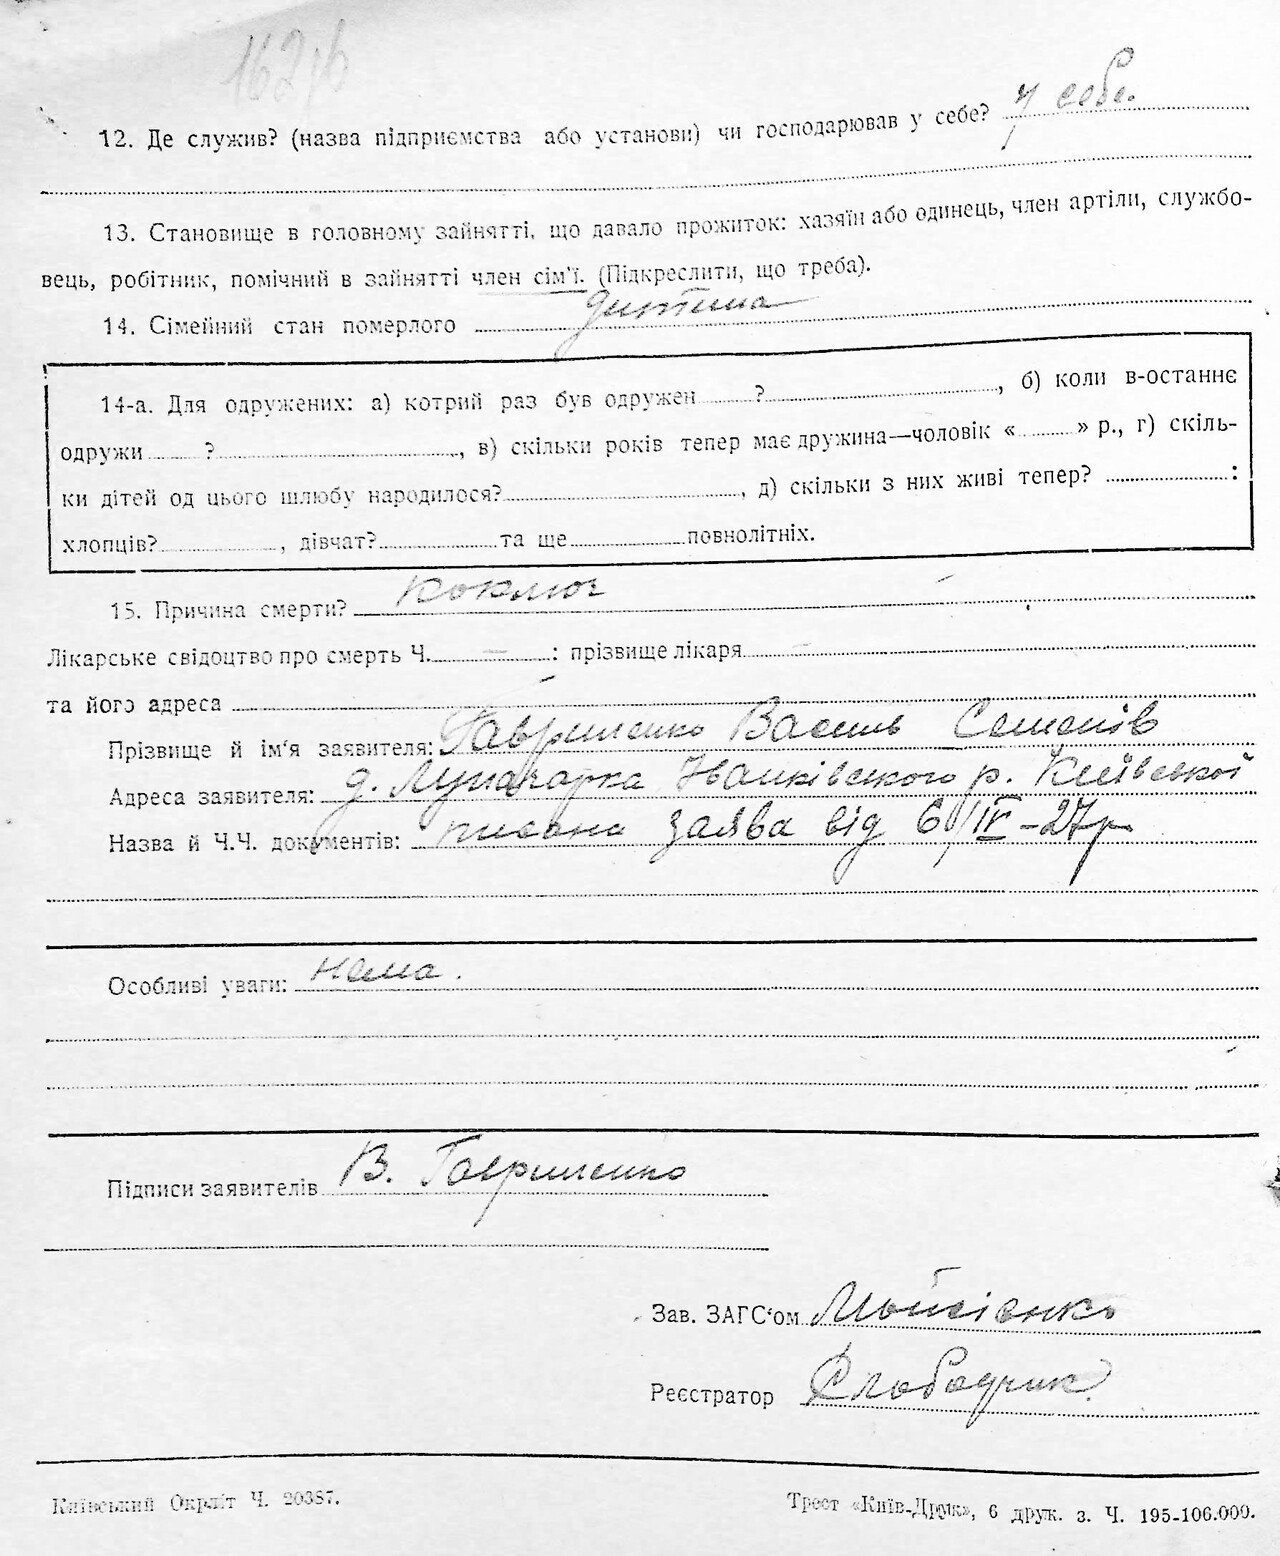 162 зв
12. Де служив? (назва підприємства або установи) чи господарював у себе? у себе.
13. Становище в головному зайнятті, що давало прожиток: хазяїн або одинець, член артіли, службо-
вець, робітник, помічний в зайнятті член сім'ї. (Підкреслити, що треба).
14. Сімейний стан померлого дитина
14-а. Для одружених: а) котрий раз був одружен ? , б) коли в-останнє
одружи ? , в) скільки років тепер має дружина—чоловік « » р., г) скіль-
ки дітей од цього шлюбу народилося? , д) скільки з них живі тепер? :
хлопців? , дівчат? та ще повнолітніх.
15. Причина смерти? коклюг
Лікарське свідоцтво про смерть Ч. — : прізвище лікаря —
та його адреса
Прізвище й ім'я заявителя: Гавриленко Василь Семенів
Адреса заявителя: д. Луначарка Іванківського р. Київської
Назва й Ч.Ч. документів: писана заява від 6/IV-27р
Особливі уваги: нема.
Підписи заявителів В. Гавриленко
Зав. ЗАГС'ом Мойсієнко
Реєстратор Слободчик
Київський Окрліт Ч. 20387.
Трест «Київ-Друк», 6 друк. з. Ч. 195-106.000.